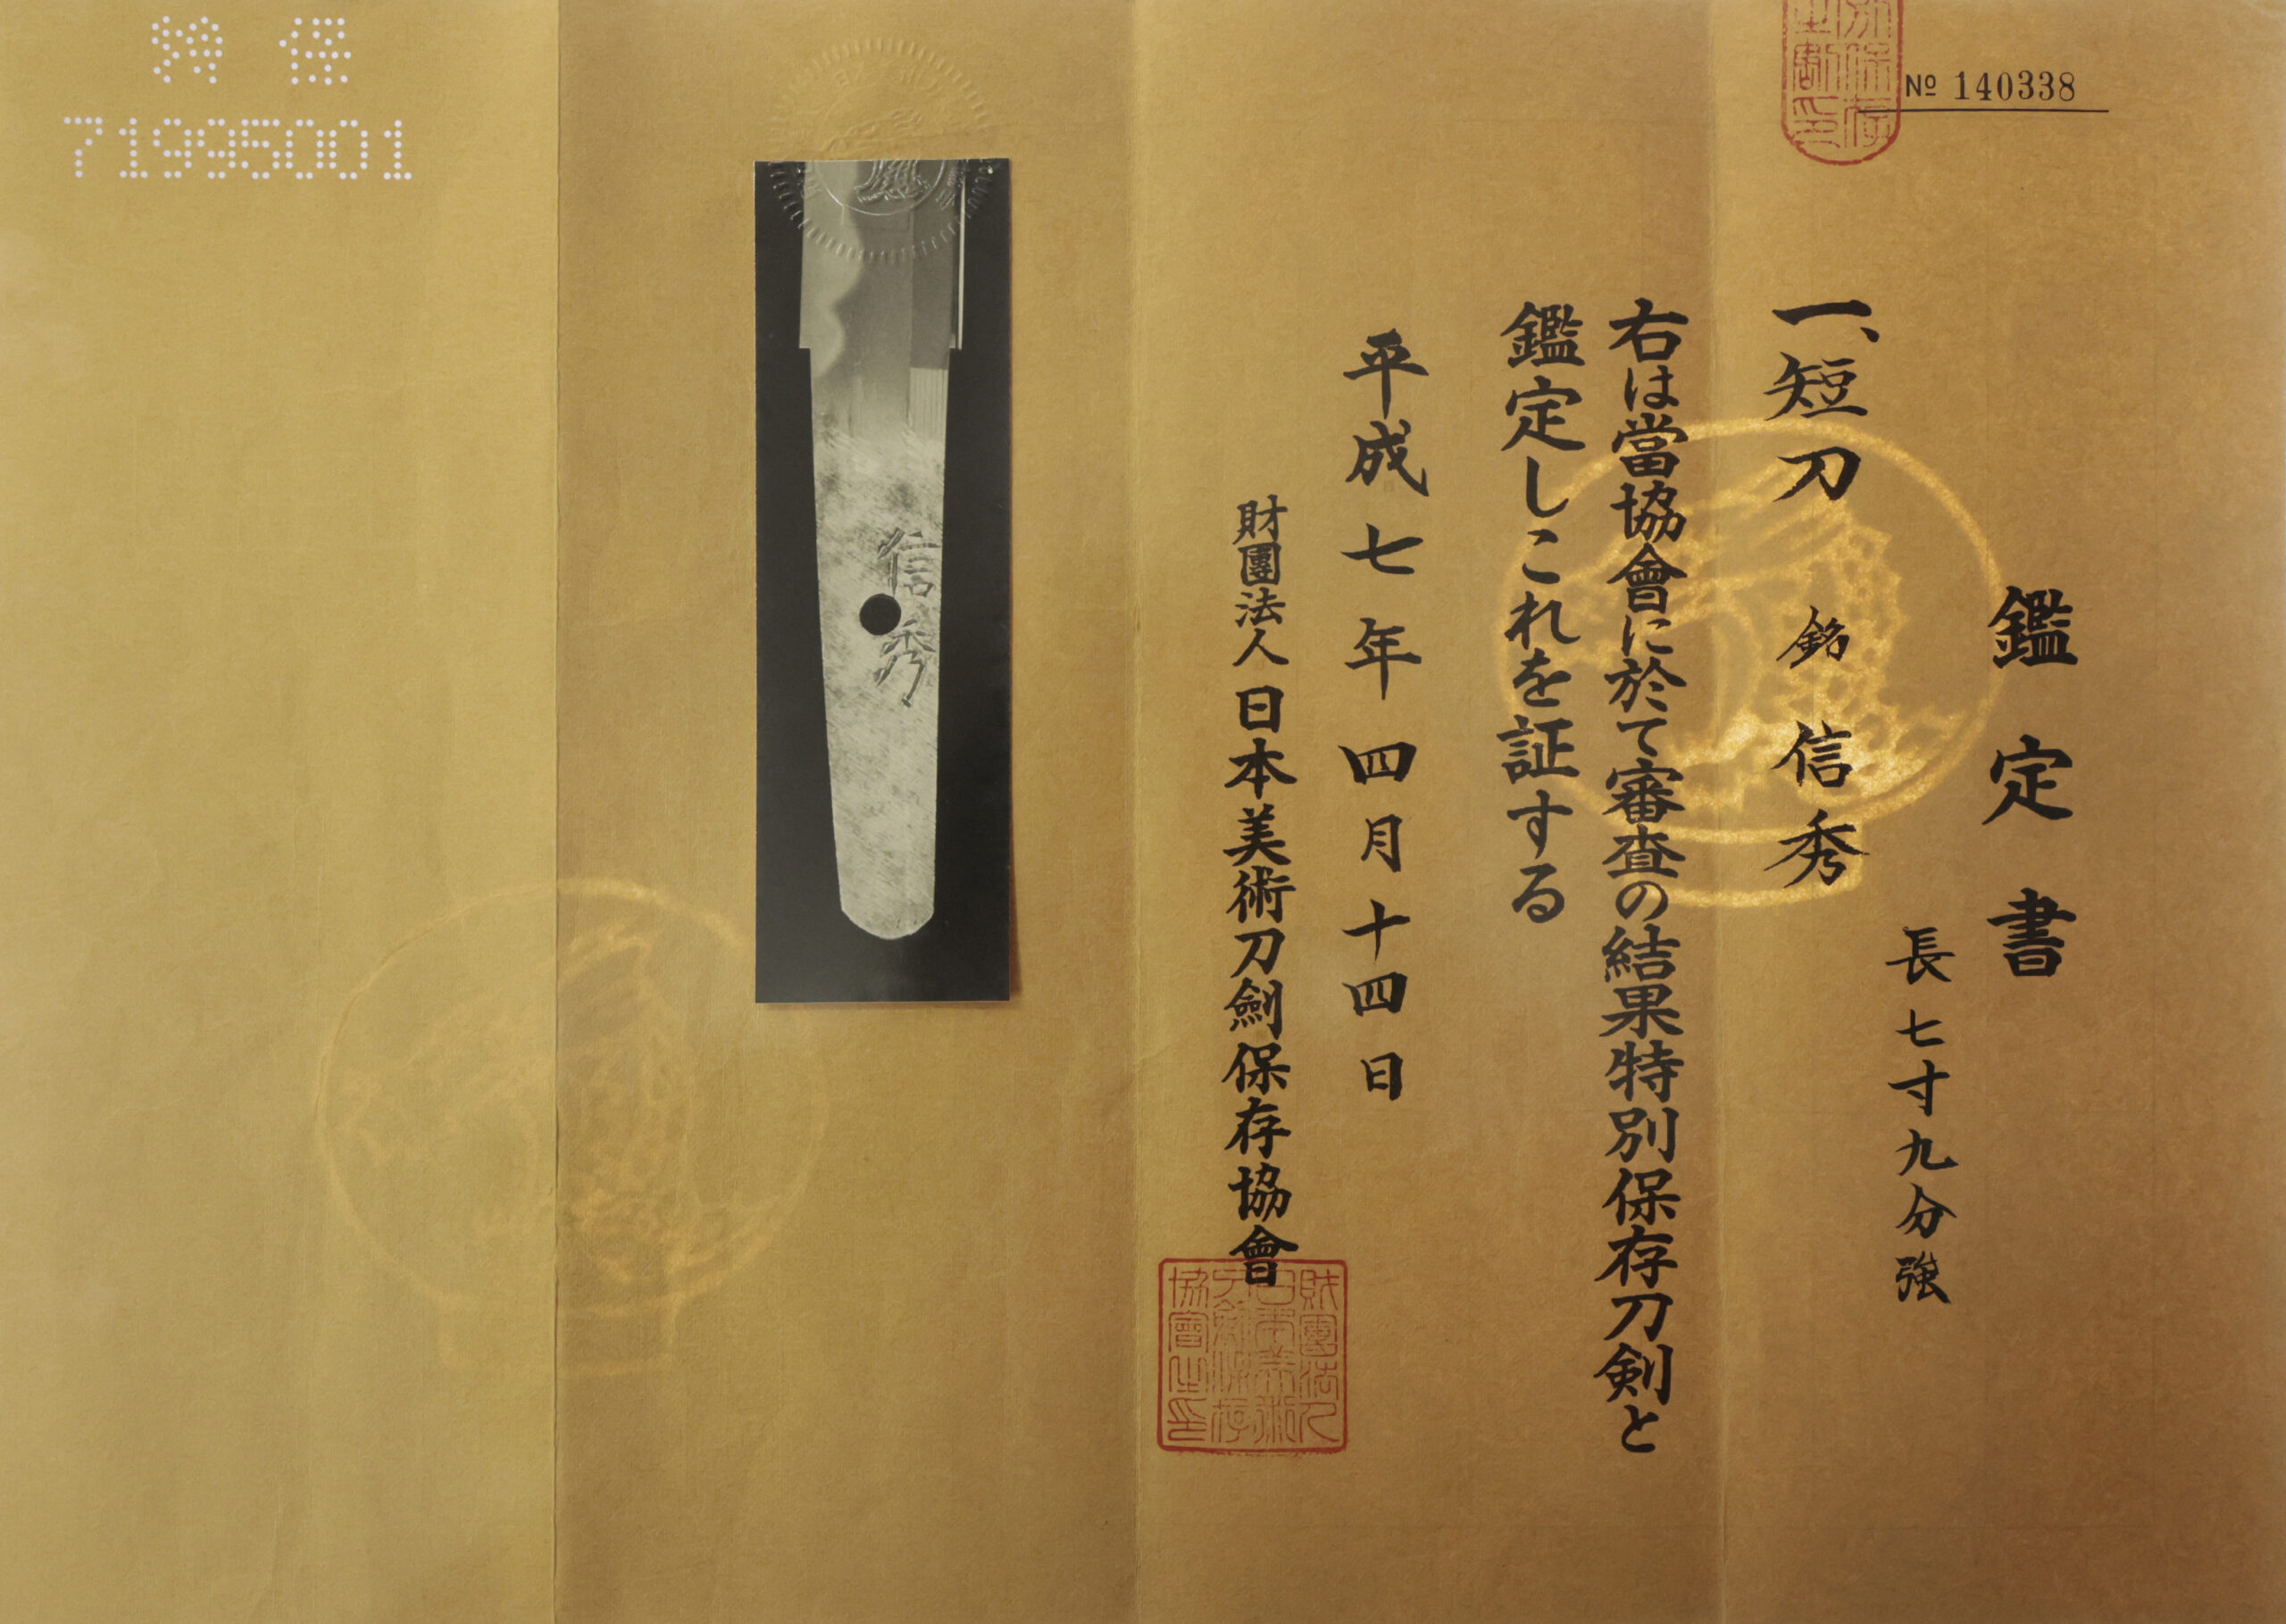 No 140338
鑑定書
長七寸九分強
一、短刀 銘 信秀
右は當協會に於て審査の結果特別保存刀剣と
鑑定しこれを証する
平成七年四月十四日
財團法人日本美術刀劍保存協會
財團法人
日本美術
刀劍保存
協會之印
信秀
特保
71995001